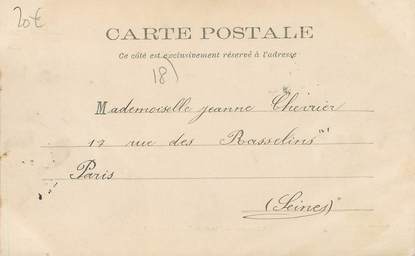 20€
CARTE POSTALE
Ce côté est exclusivement réservé à l'adresse
18)
Mademoiselle Jeanne Chevrier
12 rue des Rasselins
Paris
(Seine)